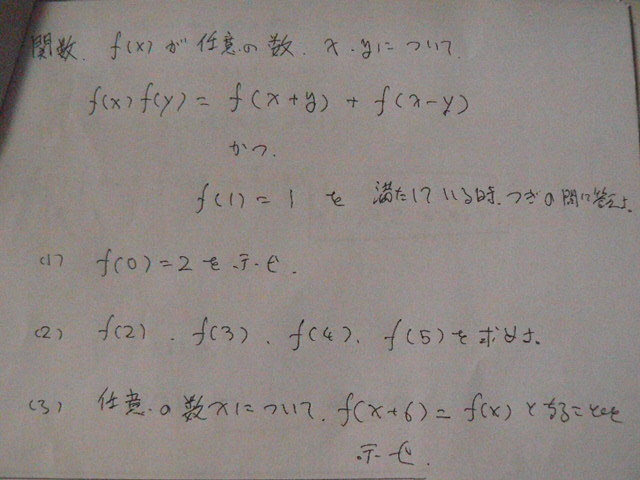 関数 f(x) が 任意の数 x・yについて
f(x)f(y) = f(x+y) + f(x-y)
かつ
f(1) = 1 を 満たしている時、つぎの問に答えよ。
(1) f(0)=2 を示せ.
(2) f(2)、f(3)、f(4)、f(5)を求めよ。
(3) 任意の数xについて、f(x+6) = f(x) となることを
示せ.